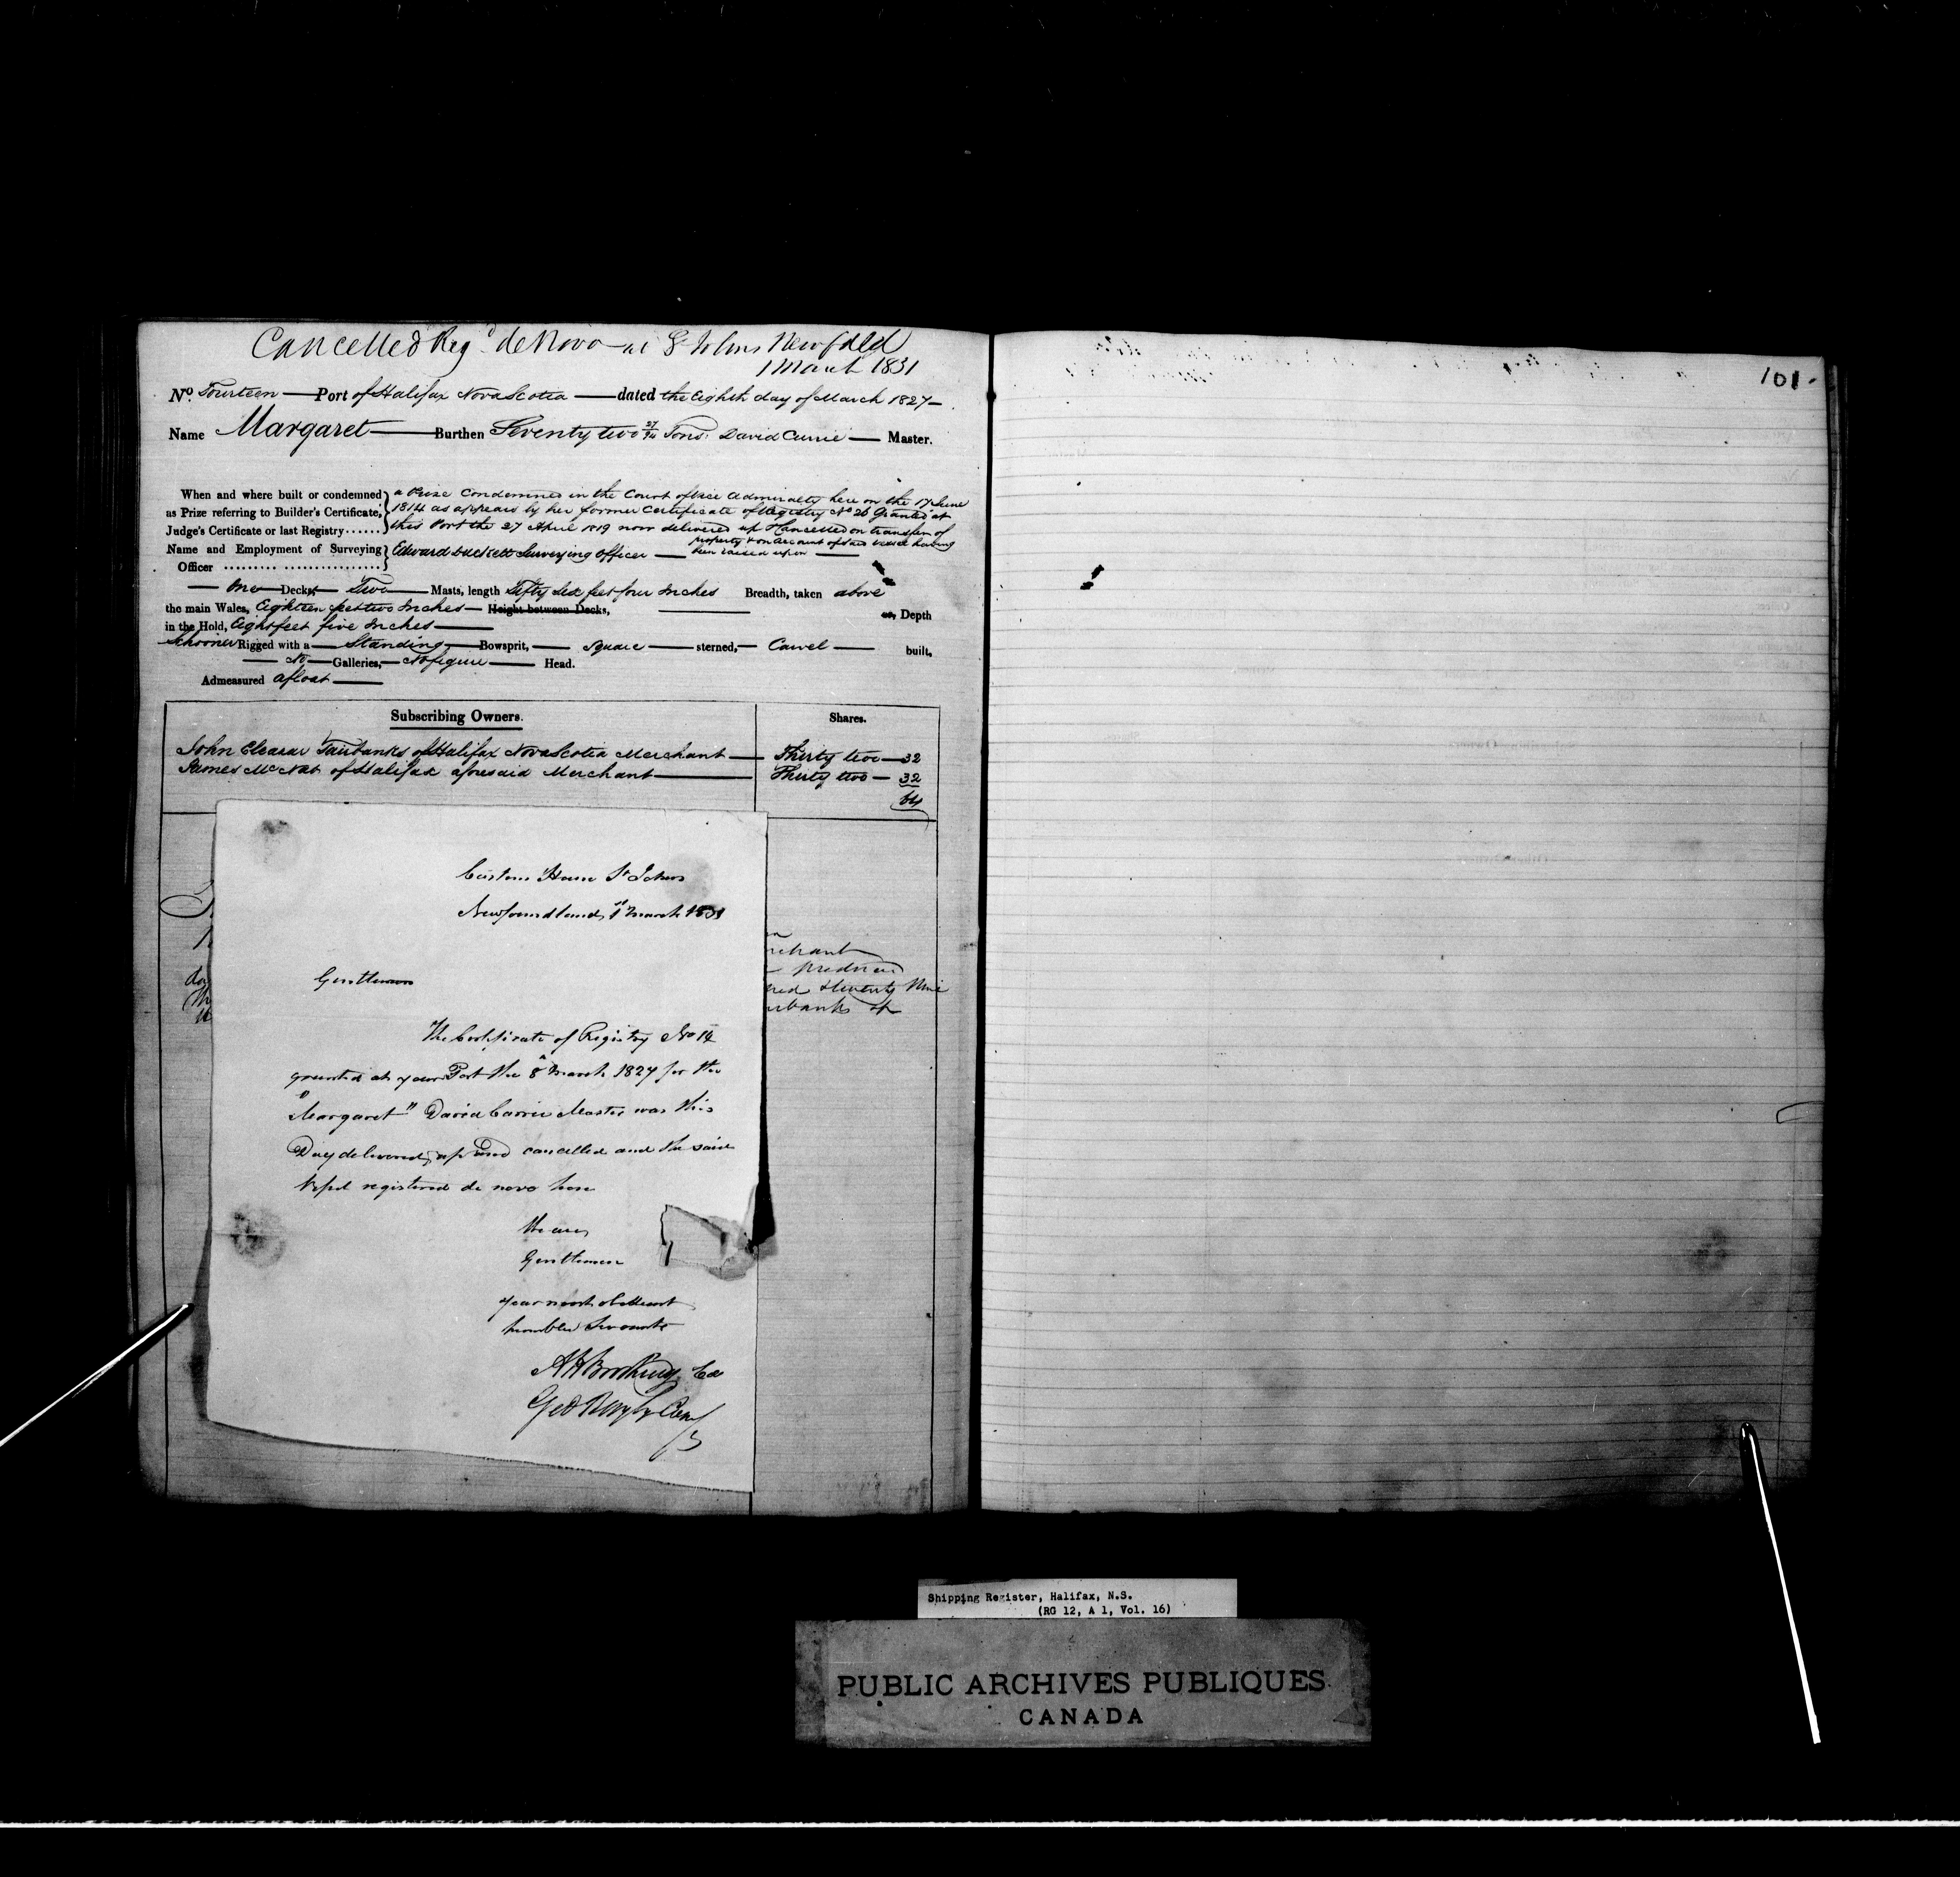 Cancelled Reg.d de Novo at St Johns Newfdld
1 March 1831
101.
No. Fourteen Port of Halifax Nova Scotia dated the Eighth day of March 1827
Name Margaret Burthen Seventy two 27/94 Tons. David Currie Master.
When and where built or condemned a Prize Condemned in the Court of Vice Admiralty here on the 17 June
as Prize referring to Builder's Certificate, 1814 as appears by her former Certificate of Registry No 26 Granted at
Judge's Certificate or last Registry...... this Port the 27 April 1819 now delivered up & Cancelled on transfer of
property & on account of said vessel having
Name and Employment of Surveying Edward Surveying Officer been raised upon
Officer ......... ................
One Decks, Two Masts, length Fifty Six feet four Inches Breadth, taken above
the main Wales, Eighteen feet two Inches Height between Decks, Depth
in the Hold, Eight feet five Inches
Schooner Rigged with a Standing Bowsprit, Square sterned, Carvel built,
No Galleries, No figure Head.
Admeasured afloat
Subscribing Owners. Shares.
John Eleazar Fairbanks of Halifax Nova Scotia Merchant Thirty two 32
James McNab of Halifax aforesaid Merchant Thirty two 32
64
Custom House St Johns
Newfoundland, 1st March 1831
Gentlemen
The Certificate of Registry No 14
granted at your Port the 8th March 1827 for the
"Margaret" David Currie Master was this
Day delivered up and cancelled and the said
Vessel registered de novo here
We are,
Gentlemen
your most obedient
humble Servants
chant
produced
red & twenty Nine
rbanks of
Shipping Register, Halifax, N.S.
(RG 12, A 1, Vol. 16)
PUBLIC ARCHIVES PUBLIQUES
CANADA